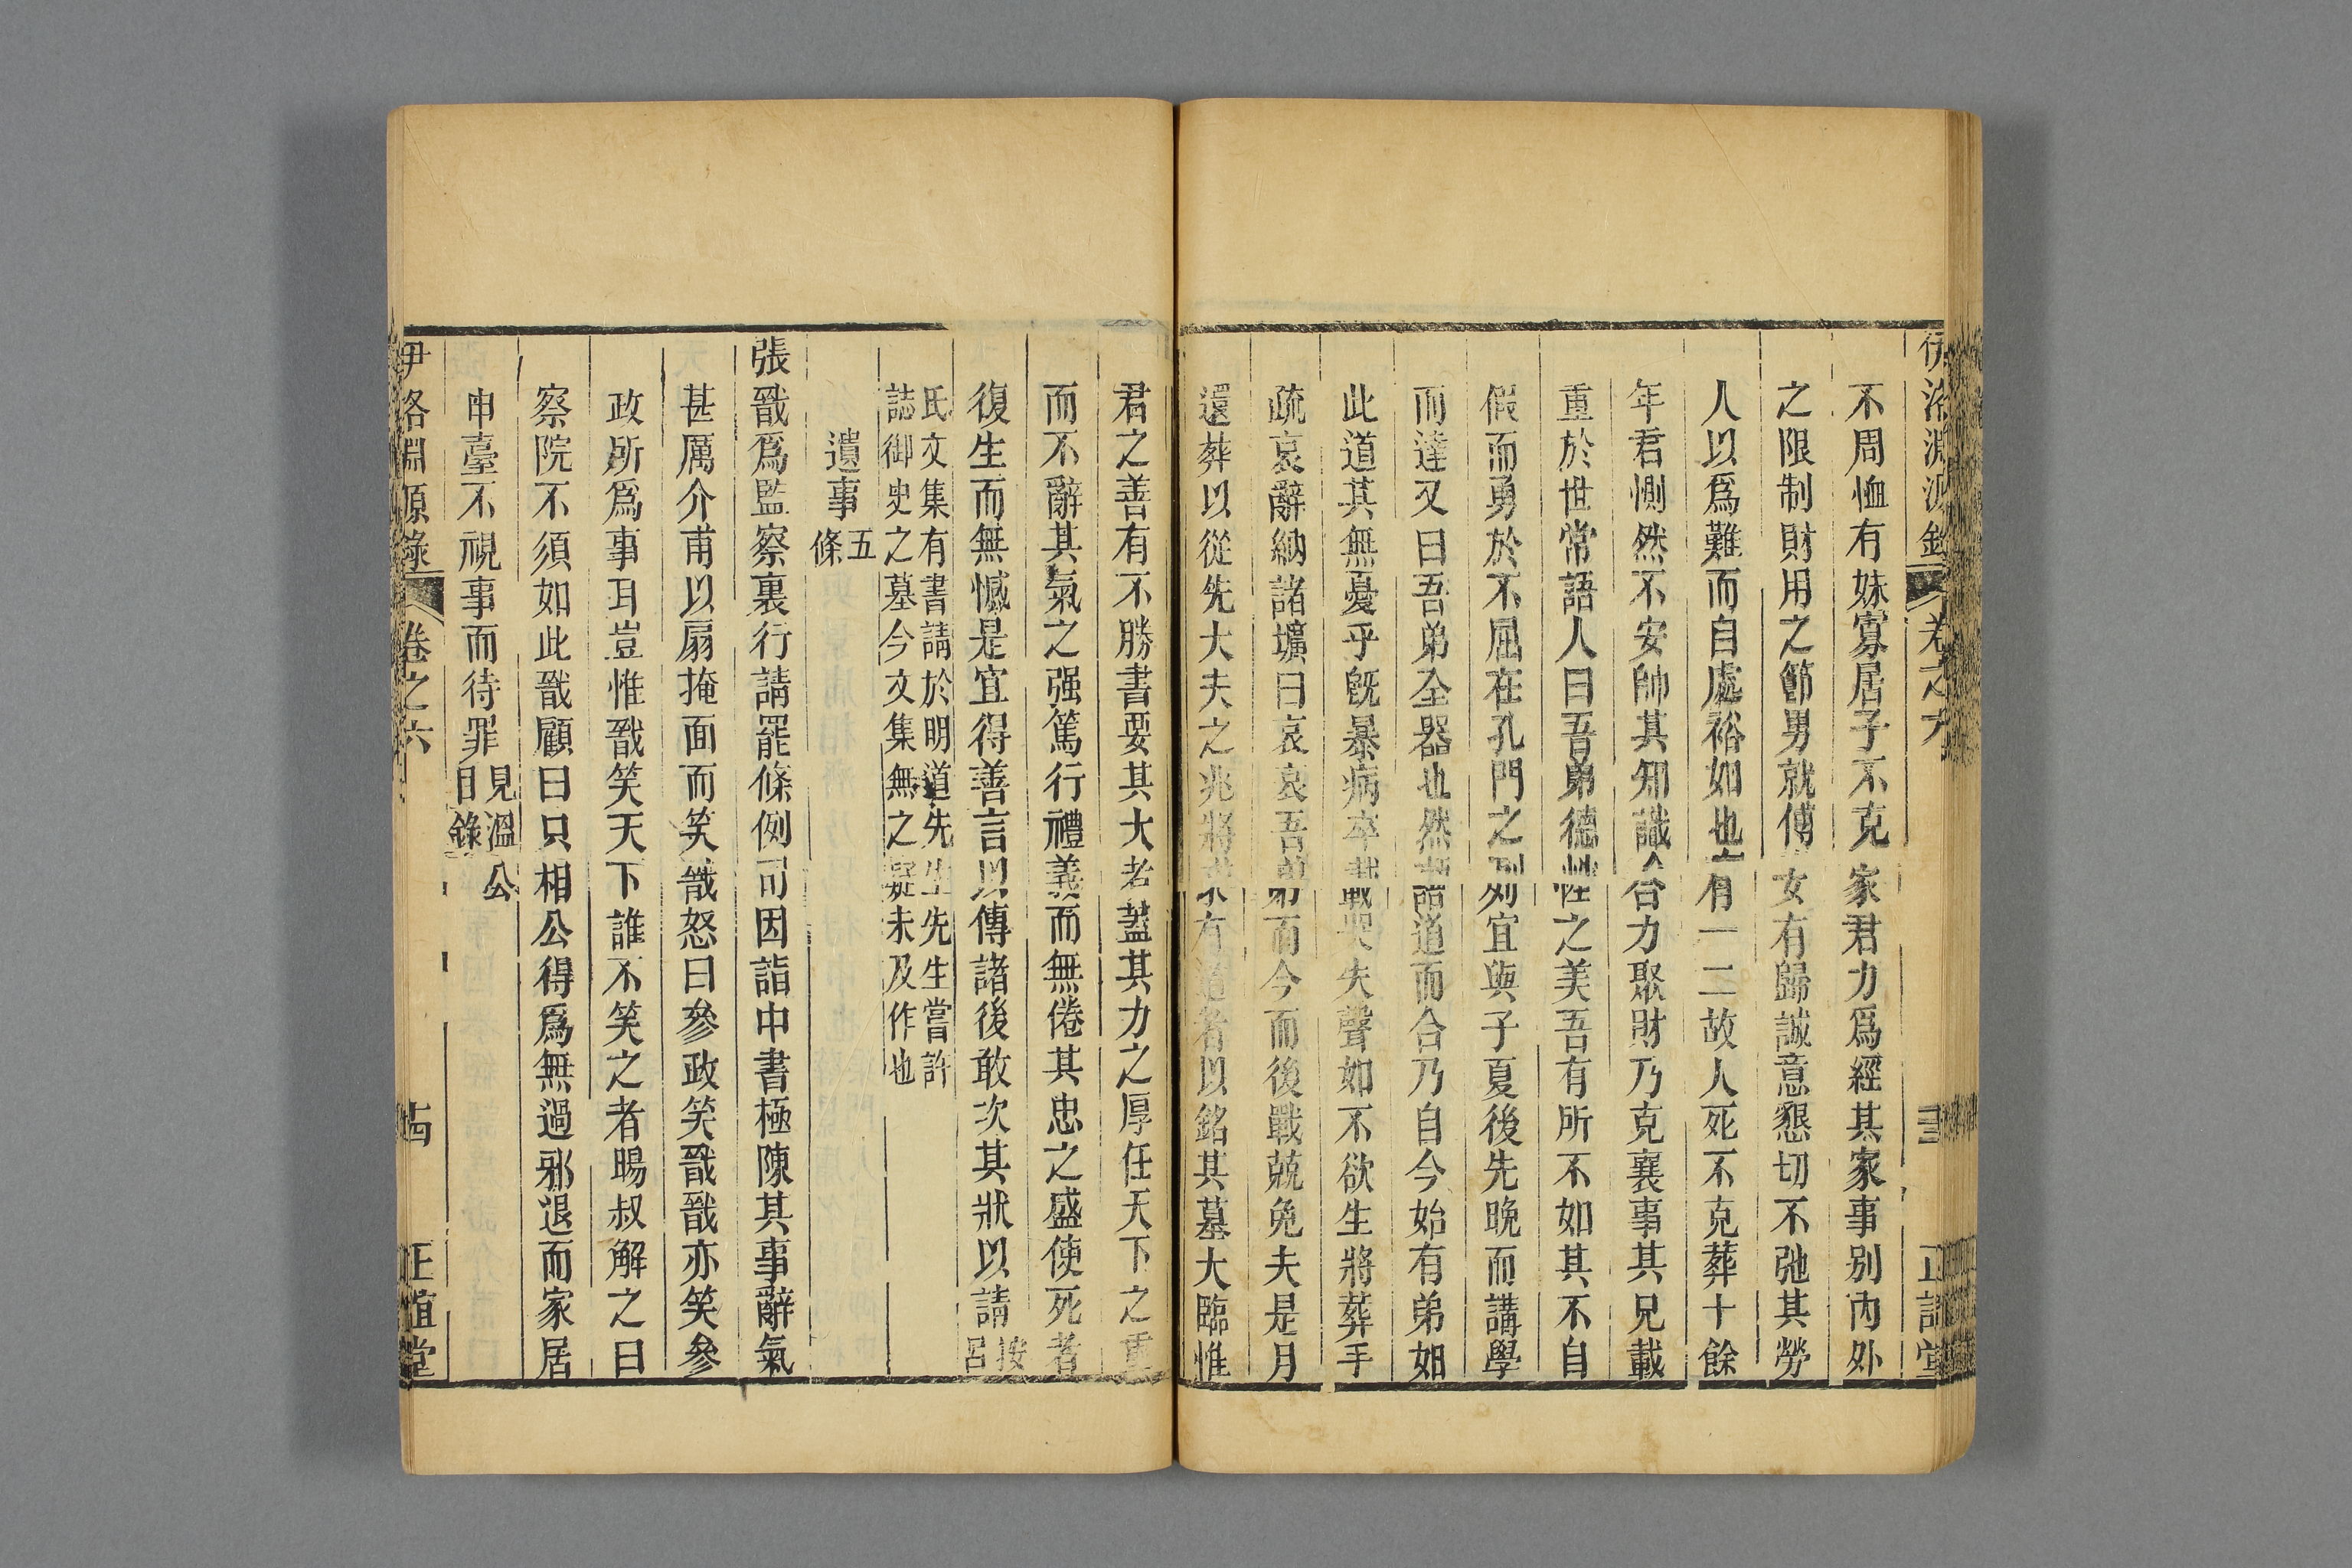 伊洛淵源錄 卷之六 正誼堂
不周恤有妹寡居子不克家君力爲經其家事別內外
之限制財用之節男就傅女有歸誠意懇切不弛其勞
人以爲難而自處裕如也有一二故人死不克葬十餘
年君惻然不安帥其知識合力聚財乃克襄事其兄載
重於世常語人曰吾弟德性之美吾有所不如其不自
假而勇於不屈在孔門之列宜與子夏後先晚而講學
而達又曰吾弟全器也然語道而合乃自今始有弟如
此道其無憂乎旣暴病卒載哭失聲如不欲生將葬手
疏哀辭納諸壙曰哀哀吾弟而今而後戰兢免夫是月
還葬以從先大夫之兆將求有道者以銘其墓大臨惟
君之善有不勝書要其大者蓋其力之厚任天下之重
而不辭其氣之强篤行禮義而無倦其忠之盛使死者
復生而無憾是宜得善言以傳諸後敢次其狀以請按呂
氏文集有書請於明道先生先生嘗許
誌御史之墓今文集無之疑未及作也
遺事五條
張戩爲監察裏行請罷條例司因詣中書極陳其事辭氣
甚厲介甫以扇掩面而笑戩怒曰參政笑戩戩亦笑參
政所爲事耳豈惟戩笑天下誰不笑之者暘叔解之曰
察院不須如此戩顧曰只相公得爲無過邪退而家居
申臺不視事而待罪見溫公日錄
伊洛淵源錄 卷之六 十四 正誼堂